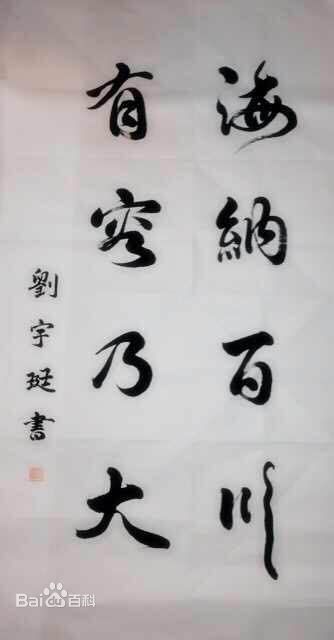 海納百川
有容乃大
劉宇珽書
Bai百科